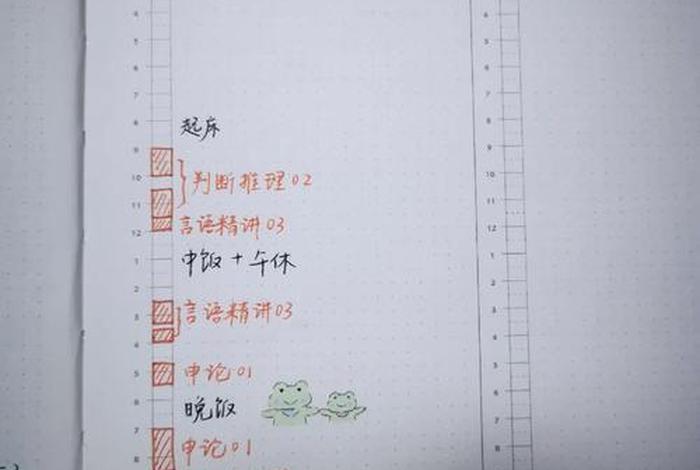 4
5
6
7
起床
8
9
判断推理02
10
11
言语精讲03
12
中饭+午休
1
2
言语精讲03
3
4
申论01
5
晚饭
6
7
申论01
8
4
5
6
7
8
9
10
11
12
1
2
3
4
5
6
7
8